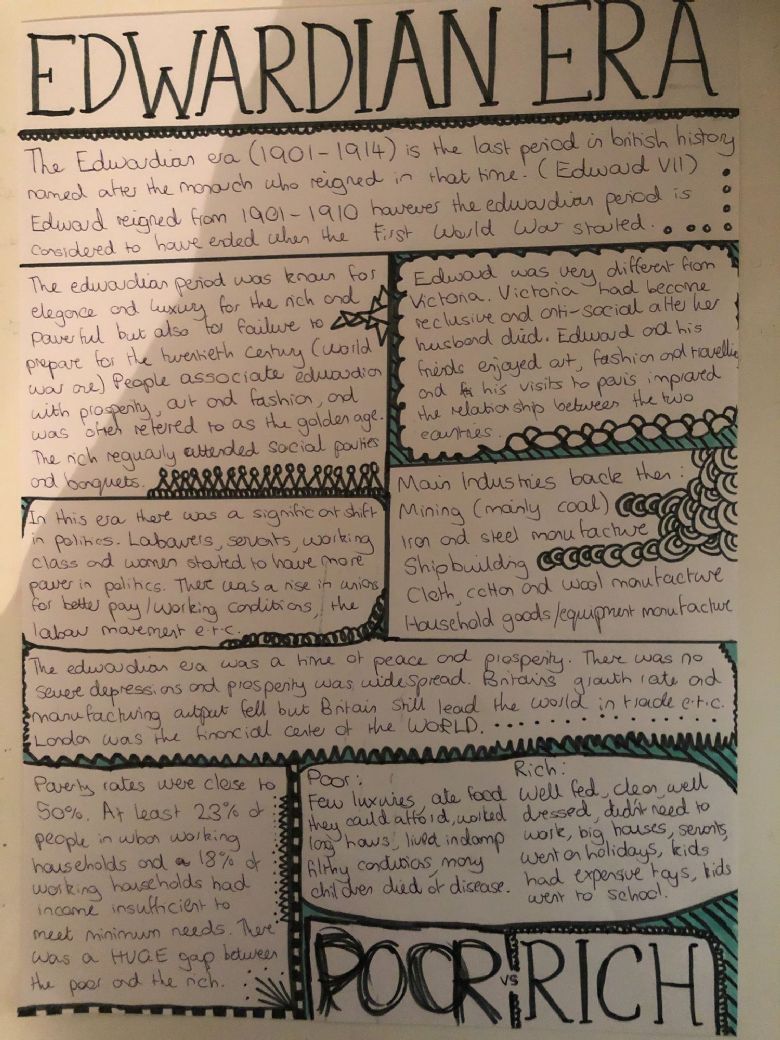 EDWARDIAN ERA
The Edwardian era (1901-1914) is the last period in british history
named after the monarch who reigned in that time. (Edward VII)
Edward reigned from 1901-1910 however the edwardian period is
considered to have ended when the First World War started.
The edwardian period was known for
elegance and luxury for the rich and
powerful but also for failure to
prepare for the twentieth century (world
war one) People associate edwardian
with prosperity, art and fashion, and
was often referred to as the golden age.
The rich regualy attended social parties
and banquets.
Edward was very different from
Victoria. Victoria had become
reclusive and anti-social after her
husband died. Edward and his
friends enjoyed art, fashion and travelling
and his visits to paris improved
the relationship between the two
countries.
In this era there was a significant shift
in politics. Labourers, servants, working
class and women started to have more
power in politics. There was a rise in unions
for better pay/working conditions, the
labour movement e.t.c.
Main Industries back then:
Mining (mainly coal)
Iron and steel manufacture
Shipbuilding
Cloth, cotton and wool manufacture
Household goods/equipment manufacture
The edwardian era was a time of peace and prosperity. There was no
severe depressions and prosperity was widespread. Britains growth rate and
manufacturing output fell but Britain still lead the world in trade e.t.c.
London was the financial center of the WORLD.
Poverty rates were close to
50%. At least 23% of
people in urban working
households and 18% of
working households had
income insufficient to
meet minimum needs. There
was a HUGE gap between
the poor and the rich.
Poor:
Few luxuries, ate food
they could afford, worked
long hours, lived in damp
filthy conditions, many
children died of disease.
Rich:
Well fed, clean, well
dressed, didn't need to
work, big houses, servants,
went on holidays, kids
had expensive toys, kids
went to school.
POOR vs RICH